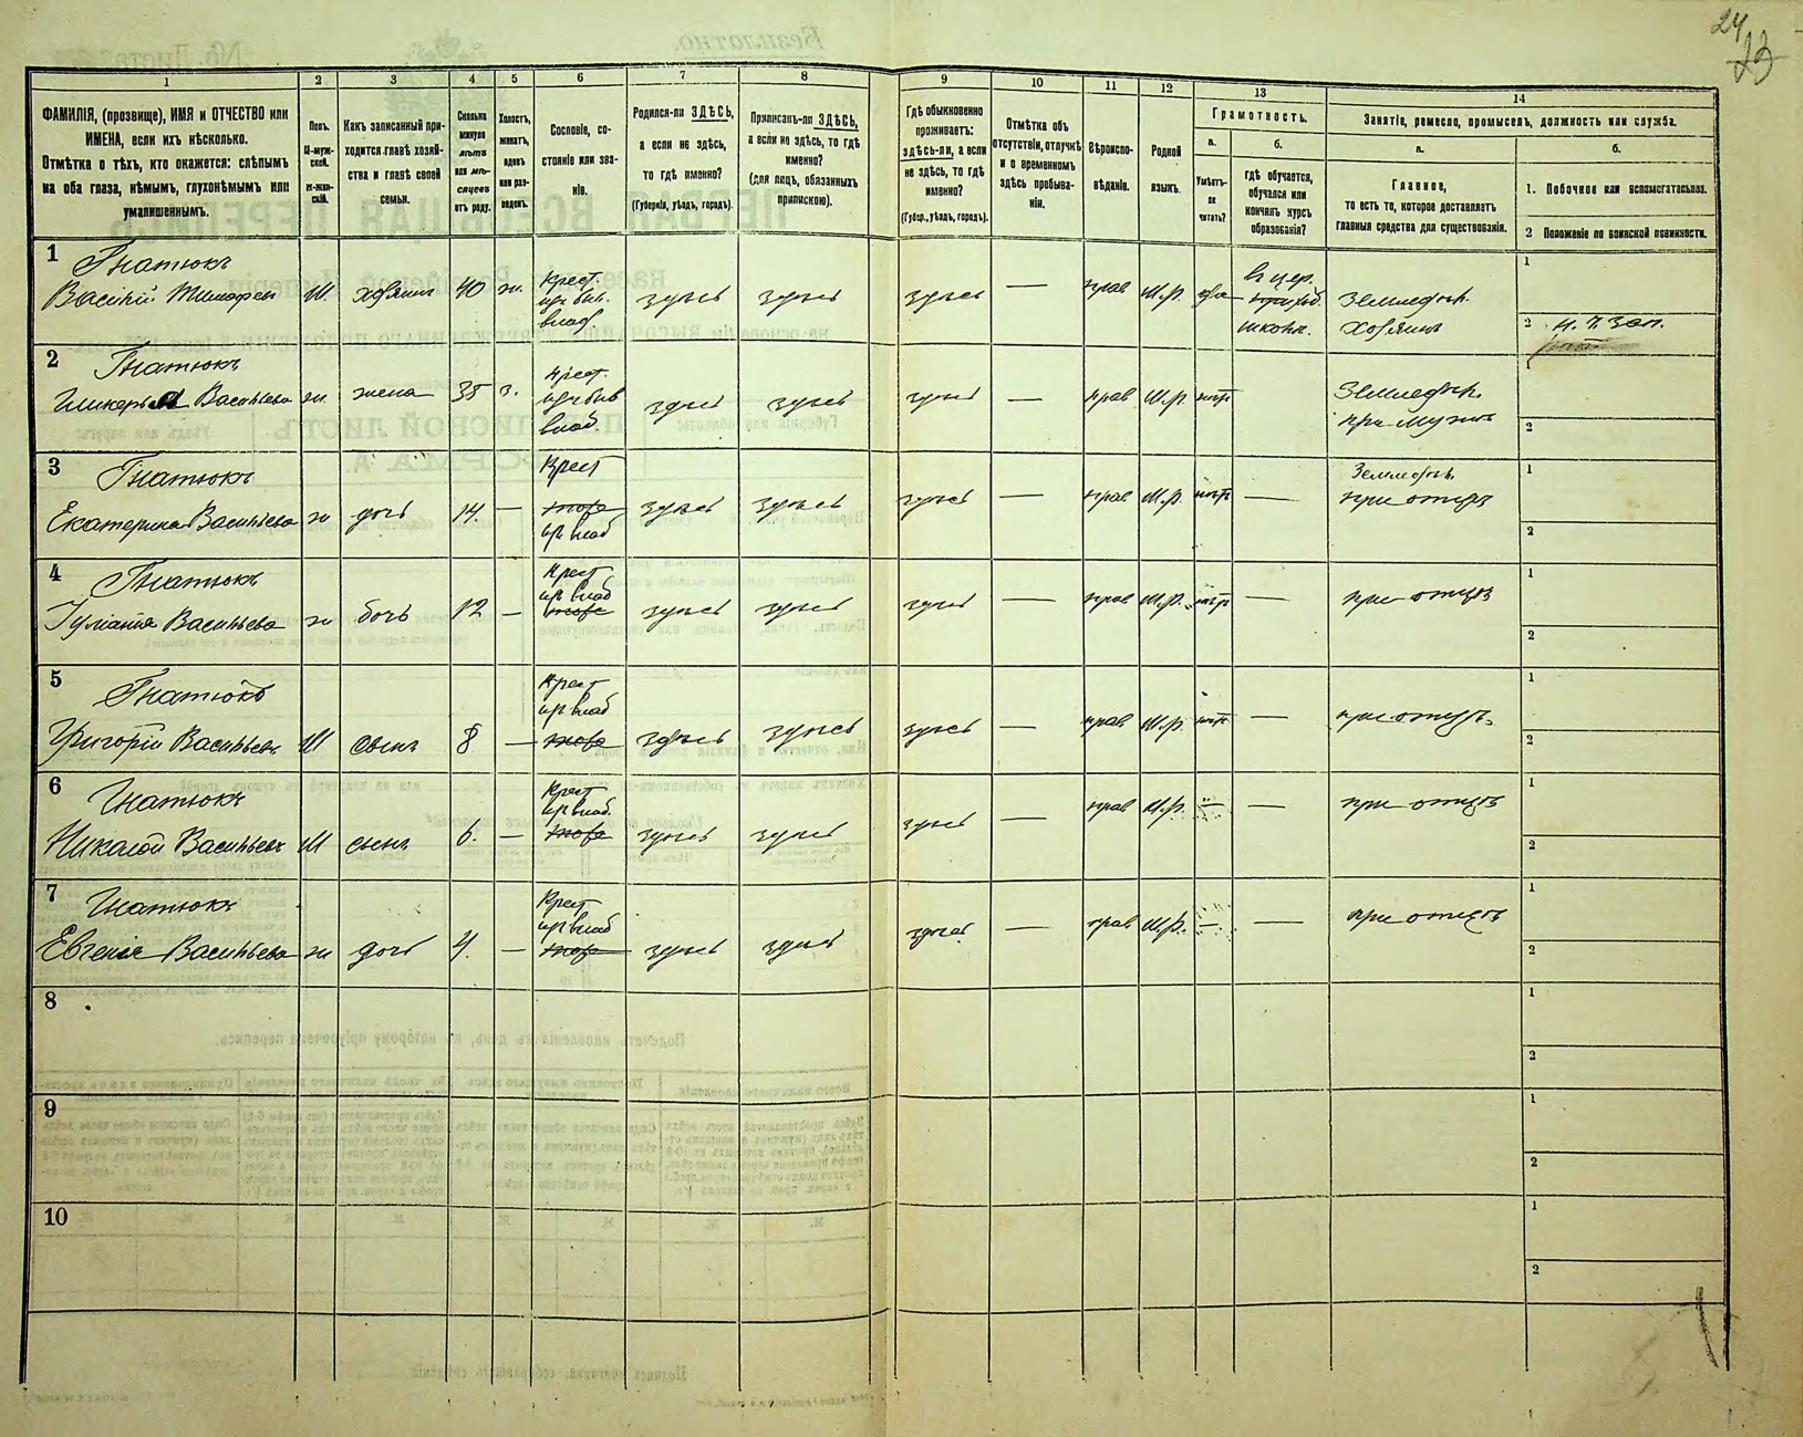 24
23
1
2
3
4
5
6
7
8
9
10
11
12
13
14
ФАМИЛІЯ, (прозвище), ИМЯ и ОТЧЕСТВО или
ИМЕНА, если ихъ нѣсколько.
Отмѣтка о тѣхъ, кто окажется: слѣпымъ
на оба глаза, нѣмымъ, глухонѣмымъ или
умалишеннымъ.
Полъ.
М-муж-
ской.
ж-жен-
скій.
Какъ записанный при-
ходится главѣ хозяй-
ства и главѣ своей
семьи.
Сколько
минуло
лѣтъ
или мѣ-
сяцевъ
отъ роду.
Холостъ,
женатъ,
вдовъ
или раз-
веденъ.
Сословіе, со-
стояніе или зва-
ніе.
Родился-ли ЗДѢСЬ,
а если не здѣсь,
то гдѣ именно?
(Губернія, уѣздъ, городъ).
Приписанъ-ли ЗДѢСЬ,
а если не здѣсь, то гдѣ
именно?
(для лицъ, обязанныхъ
припискою).
Гдѣ обыкновенно
проживаетъ:
здѣсь-ли, а если
не здѣсь, то гдѣ
именно?
(Губер., уѣздъ, городъ).
Отмѣтка объ
отсутствіи, отлучкѣ
и о временномъ
здѣсь пребыва-
ніи.
Вѣроиспо-
вѣданіе.
Родной
языкъ.
Грамотность.
а.
Умѣетъ-
ли
читать?
б.
гдѣ обучается,
обучался или
кончилъ курсъ
образованія?
Занятіе, ремесло, промыселъ, должность или служба.
а.
Главное,
то есть то, которое доставляетъ
главныя средства для существованія.
б.
1. Побочное или вспомогательное.
2 Положеніе по воинской повинности.
1
Гнатюкъ
Василій Тимофеев
М.
хозяинъ
40
ж.
Крест.
изъ быв.
влад.
здѣсь
здѣсь
здѣсь
—
прав
М.р.
да
въ цер.
приход.
школѣ.
Земледѣл.
Хозяинъ
1
2
н. ч. зап.
2
Гнатюкъ
Гликерья Васильева
ж.
жена
35
з.
крест.
изъ быв
влад.
здѣсь
здѣсь
здѣсь
—
прав
М.р.
нѣтъ
Земледѣл.
при мужѣ
1
2
3
Гнатюкъ
Екатерина Васильева
ж
дочь
14.
—
Крест
тоже
изъ влад
здѣсь
здѣсь
здѣсь
—
прав
М.р.
нѣтъ
—
Земледѣл.
при отцѣ
1
2
4
Гнатюкъ
Іулианія Васильева
ж
дочь
12
—
Крест
изъ влад
тоже
здѣсь
здѣсь
здѣсь
—
прав
М.р.
нѣтъ
—
при отцѣ
1
2
5
Гнатюкъ
Григорій Васильев
М
сынъ
8
—
Крест
изъ влад
тоже
здѣсь
здѣсь
здѣсь
—
прав
М.р.
нѣтъ
—
при отцѣ
1
2
6
Гнатюкъ
Николай Васильев
М
сынъ
6.
—
Крест
изъ влад.
тоже
здѣсь
здѣсь
здѣсь
—
прав
М.р.
—
—
при отцѣ
1
2
7
Гнатюкъ
Евгенія Васильева
ж
дочь
4.
—
Крест
изъ влад
тоже
здѣсь
здѣсь
здѣсь
—
прав
М.р.
—
—
при отцѣ
1
2
8
1
2
9
1
2
10
1
2